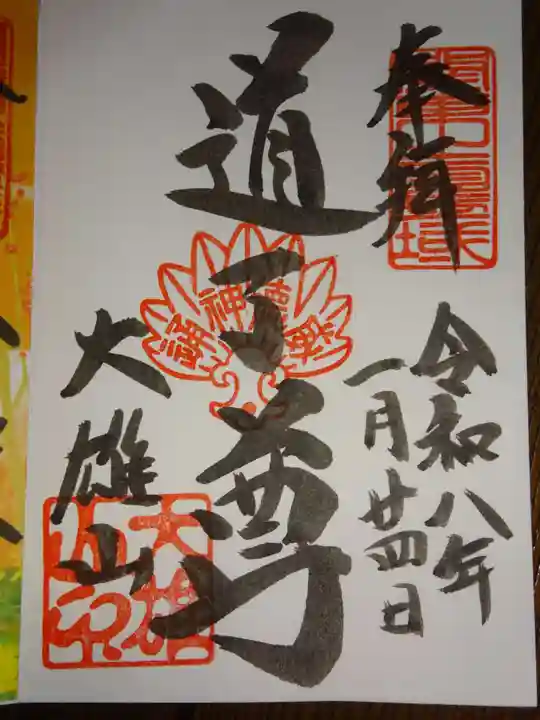 奉拝
令和八年
一月廿四日
道了尊
大雄山
大雄山印